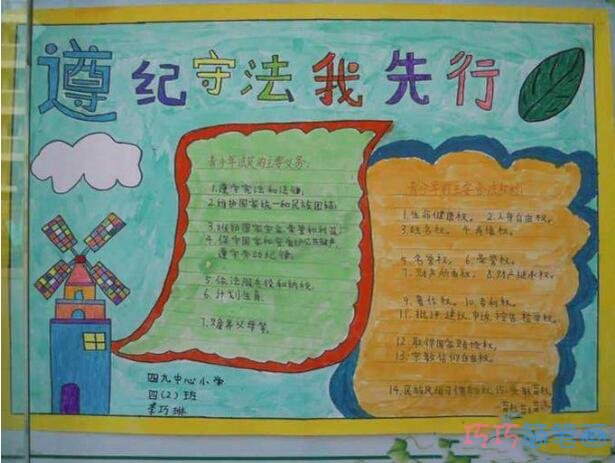 遵纪守法我先行
青少年法定的主要义务:
1.遵守宪法和法律;
2.维护国家统一和民族团结;
3.维护国家安全荣誉和利益;
4.保守国家和
遵守劳动纪律。
5.依法服兵役和纳税。
6.计划生育。
7.赡养父母等。
四九中心小学
四(2)班
李巧琳
青少年的主要
1.生命健康权。 2.人身自由权。
3.姓名权。 4.肖像权。
5.名誉权。 6.荣誉权。
7.财产所有权。 8.财产继承权。
9.著作权。 10.专利权。
11.批评.建议.申诉.控告.检举权。
12.取得国家赔偿权。
13.宗教信仰自由权。
14.民族风俗习惯 权。 15.受教育权。
巧巧简笔画